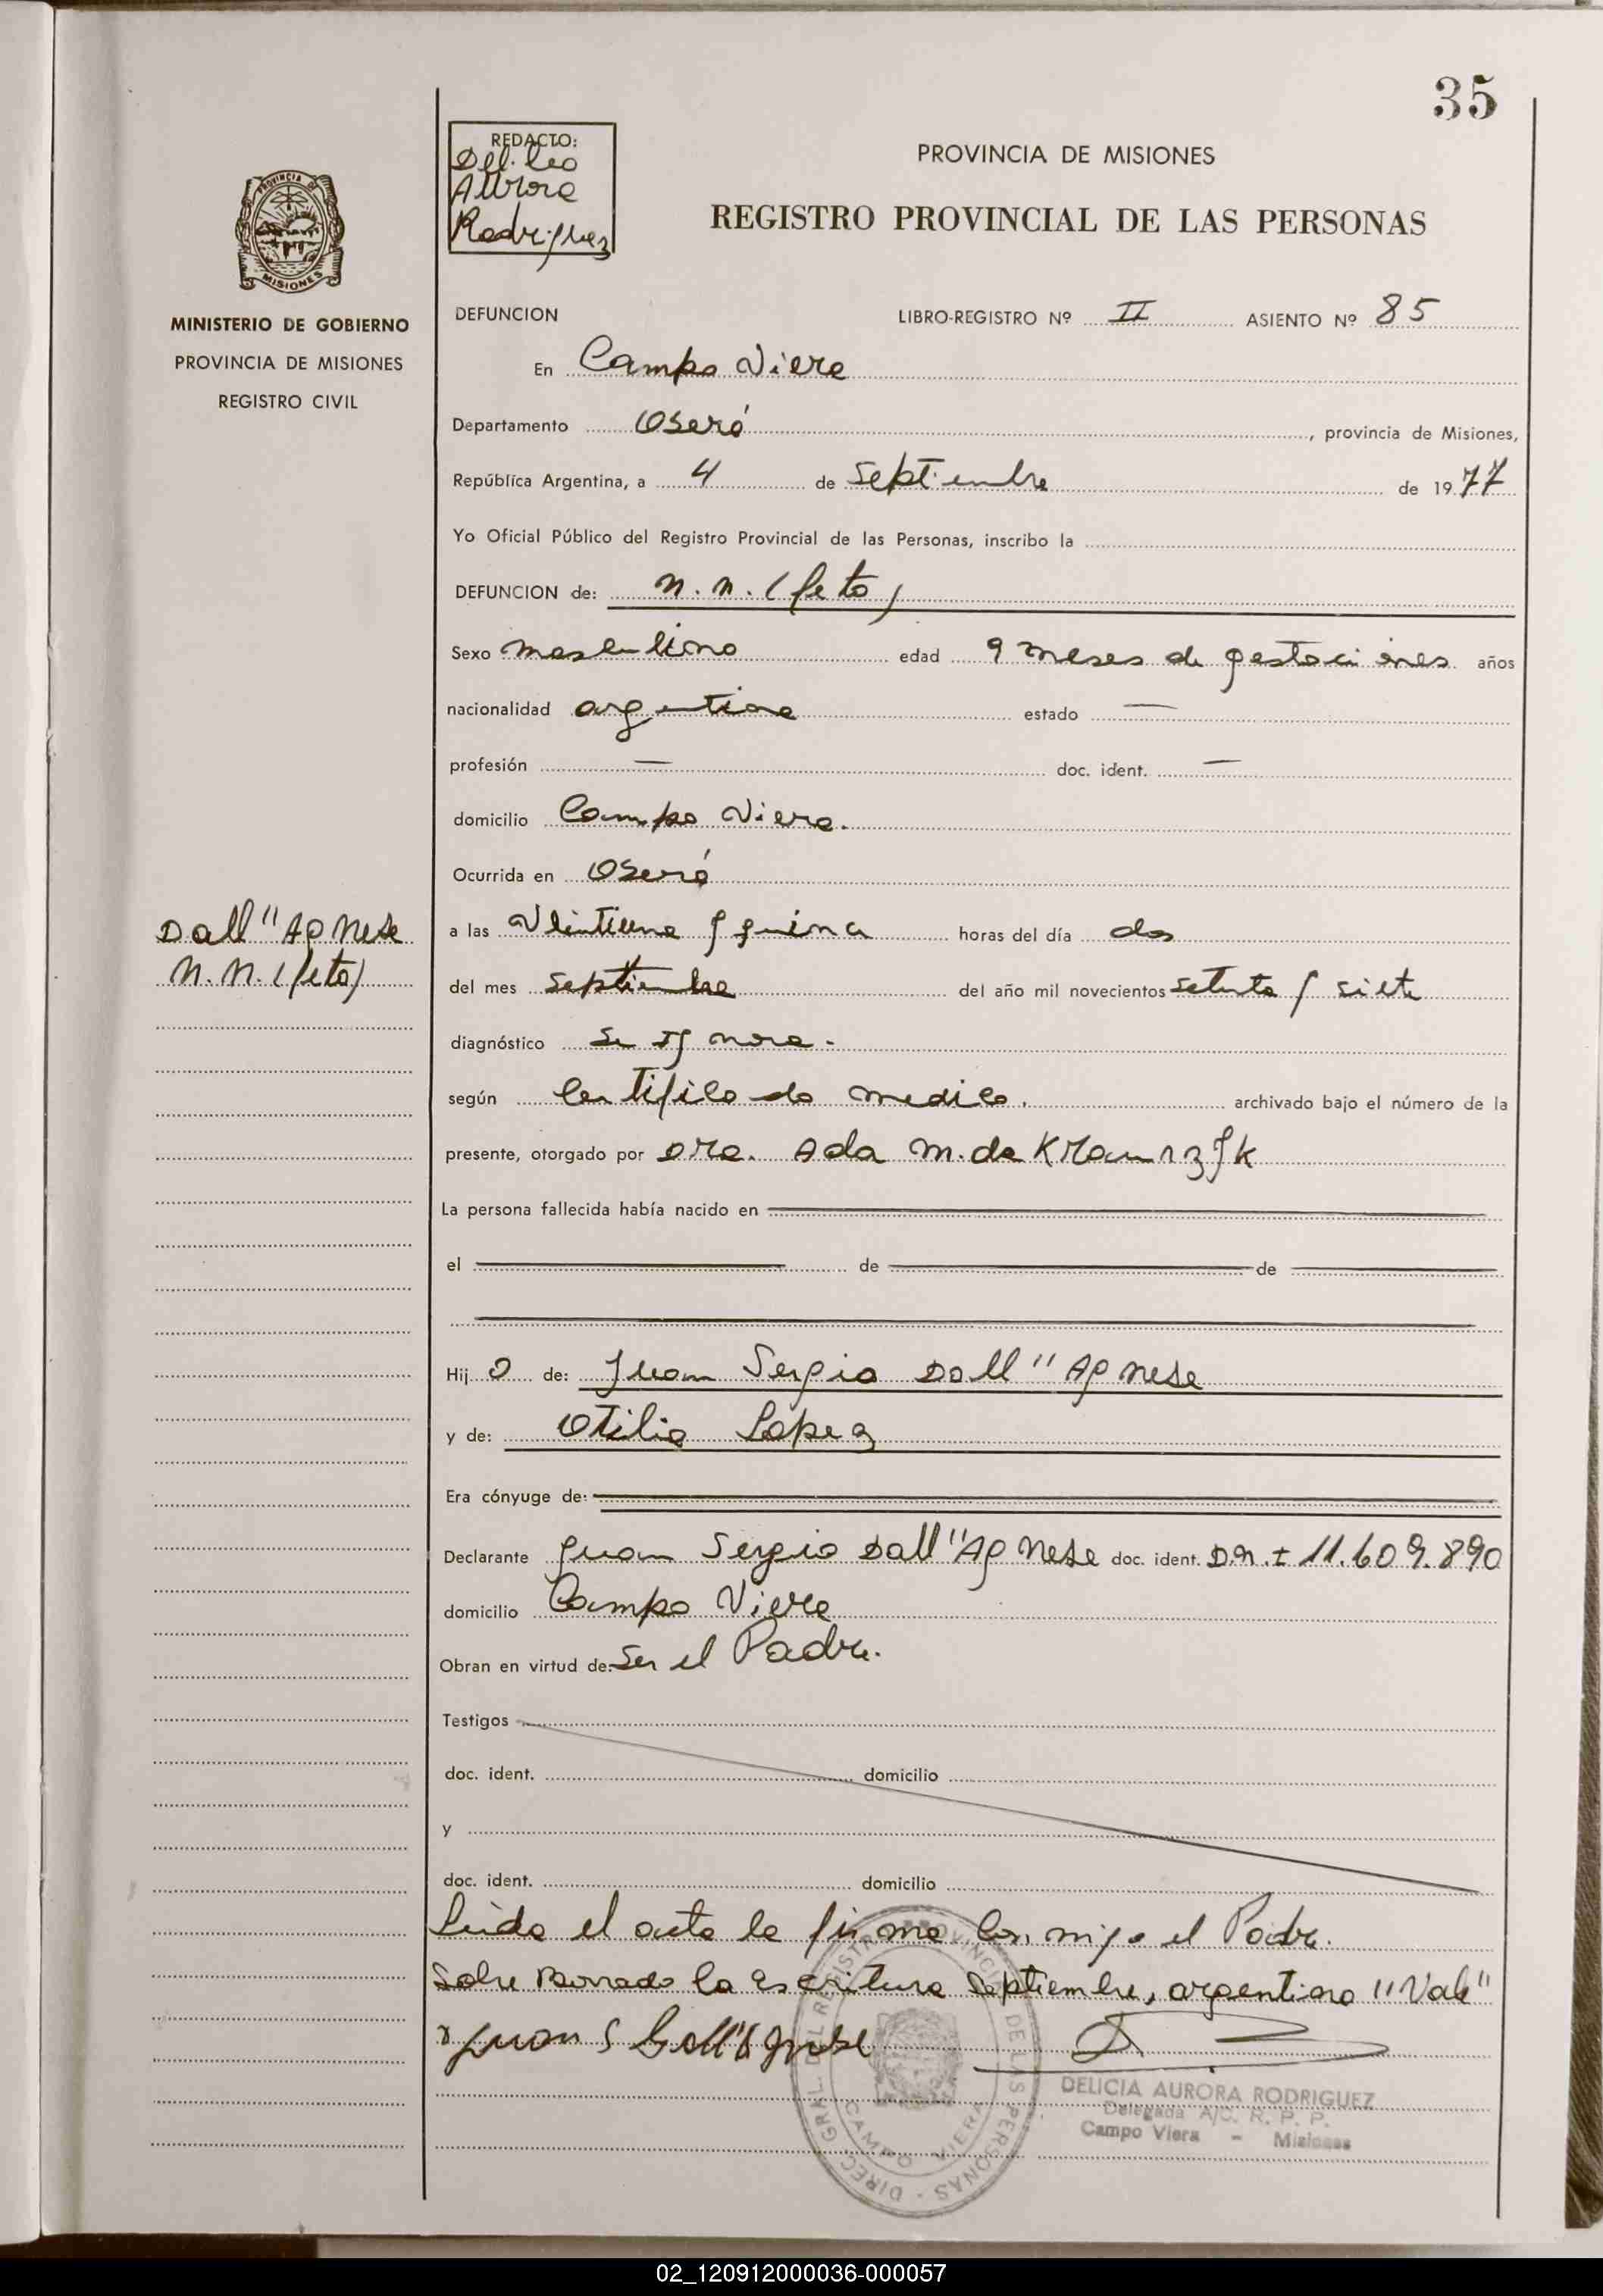 35
REDACTO:
Delicia
Aurora
Rodriguez
PROVINCIA DE MISIONES
REGISTRO PROVINCIAL DE LAS PERSONAS
PROVINCIA DE
MISIONES
MINISTERIO DE GOBIERNO
PROVINCIA DE MISIONES
REGISTRO CIVIL
DEFUNCION LIBRO-REGISTRO Nº II ASIENTO Nº 85
En Campo Viera
Departamento Oberá, provincia de Misiones,
República Argentina, a 4 de Septiembre de 1977
Yo Oficial Público del Registro Provincial de las Personas, inscribo la
DEFUNCION de: N.N. (feto)
Sexo masculino edad 9 meses de gestaciones años
nacionalidad argentina estado —
profesión — doc. ident. —
domicilio Campo Viera.
Ocurrida en Oberá
Dall" Agnese
N.N. (feto)
a las Veintiuna y quince horas del día dos
del mes Septiembre del año mil novecientos setenta y siete
diagnóstico Se Ignora.
según Certificado medico. archivado bajo el número de la
presente, otorgado por Dra. Ada M. de
La persona fallecida había nacido en
el de de
Hijo de: Juan Sergio Dall" Agnese
y de: Otilia Lopez
Era cónyuge de:
Declarante Juan Sergio Dall" Agnese doc. ident. D.N.I 11.609.890
domicilio Campo Viera
Obran en virtud de: Ser el Padre.
Testigos
doc. ident. domicilio
y
doc. ident. domicilio
Leida el acta la firma conmigo el Padre.
Sobre Borrado la escritura Septiembre, argentina "Vale"
Juan S Dall"Agnese
DIREC. GRAL. DEL REGISTRO PROVINCIAL DE LAS PERSONAS
CAMPO VIERA
DELICIA AURORA RODRIGUEZ
Delegada A/C. R. P. P.
Campo Viera - Misiones
02_120912000036-000057